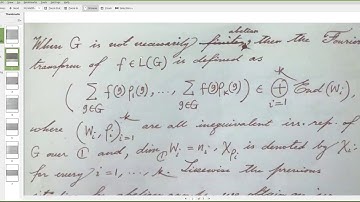 abelian
When G is not necessarily finite then the Fourier
transform of f∈L(G) is defined as
( ∑_{g∈G} f(g)ρ_1(g), ..., ∑_{g∈G} f(g)ρ_k(g) ) ∈ ⊕_{i=1}^{k} End(W_i),
where (W_i, ρ_i)_{i=1}^{k} are all inequivalent irr. rep. of
G over ℂ and, dim_ℂ W_i = n_i, χ_{ρ_i} is denoted by χ_i
for every i=1, ..., k. Likewise the previous